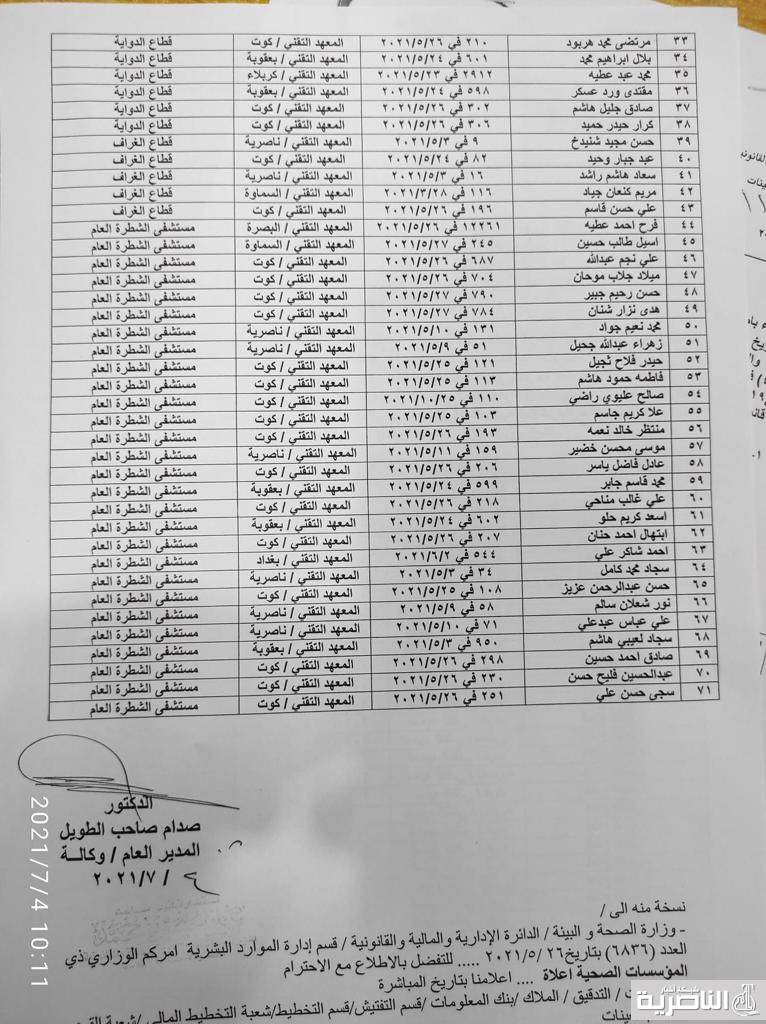 ٣٣ مرتضى محمد هربود ٢١٠ في ٢٠٢١/٥/٢٦ المعهد التقني / كوت قطاع الدواية
٣٤ بلال ابراهيم محمد ٦٠١ في ٢٠٢١/٥/٢٤ المعهد التقني / بعقوبة قطاع الدواية
٣٥ محمد عبد عطيه ٢٩١٢ في ٢٠٢١/٥/٢٣ المعهد التقني / كربلاء قطاع الدواية
٣٦ مقتدى ورد عسكر ٥٩٨ في ٢٠٢١/٥/٢٤ المعهد التقني / بعقوبة قطاع الدواية
٣٧ صادق جليل هاشم ٣٠٢ في ٢٠٢١/٥/٢٦ المعهد التقني / كوت قطاع الدواية
٣٨ كرار حيدر حميد ٣٠٦ في ٢٠٢١/٥/٢٦ المعهد التقني / كوت قطاع الدواية
٣٩ حسن مجيد شنيدخ ٩ في ٢٠٢١/٥/٣ المعهد التقني / ناصرية قطاع الغراف
٤٠ عبد جبار وحيد ٨٢ في ٢٠٢١/٥/٢٤ المعهد التقني / كوت قطاع الغراف
٤١ سعاد هاشم راشد ١٦ في ٢٠٢١/٥/٣ المعهد التقني / ناصرية قطاع الغراف
٤٢ مريم كنعان جياد ١١٦ في ٢٠٢١/٣/٢٨ المعهد التقني / السماوة قطاع الغراف
٤٣ علي حسن قاسم ١٩٦ في ٢٠٢١/٥/٢٦ المعهد التقني / كوت قطاع الغراف
٤٤ فرح احمد عطيه ١٢٢٦١ في ٢٠٢١/٥/٢٦ المعهد التقني / البصرة مستشفى الشطرة العام
٤٥ اسيل طالب حسين ٢٤٥ في ٢٠٢١/٥/٢٧ المعهد التقني / السماوة مستشفى الشطرة العام
٤٦ علي نجم عبدالله ٦٨٧ في ٢٠٢١/٥/٢٦ المعهد التقني / كوت مستشفى الشطرة العام
٤٧ ميلاد جلاب موحان ٧٠٤ في ٢٠٢١/٥/٢٦ المعهد التقني / كوت مستشفى الشطرة العام
٤٨ حسن رحيم جبير ٧٩٠ في ٢٠٢١/٥/٢٧ المعهد التقني / كوت مستشفى الشطرة العام
٤٩ هدى نزار شنان ٧٨٤ في ٢٠٢١/٥/٢٧ المعهد التقني / كوت مستشفى الشطرة العام
٥٠ محمد نعيم جواد ١٣١ في ٢٠٢١/٥/١٠ المعهد التقني / ناصرية مستشفى الشطرة العام
٥١ زهراء عبدالله جحيل ٥١ في ٢٠٢١/٥/٩ المعهد التقني / ناصرية مستشفى الشطرة العام
٥٢ حيدر فلاح ثجيل ١٢١ في ٢٠٢١/٥/٢٥ المعهد التقني / كوت مستشفى الشطرة العام
٥٣ فاطمه حمود هاشم ١١٣ في ٢٠٢١/٥/٢٥ المعهد التقني / كوت مستشفى الشطرة العام
٥٤ صالح عليوي راضي ١١٠ في ٢٠٢١/١٠/٢٥ المعهد التقني / كوت مستشفى الشطرة العام
٥٥ علا كريم جاسم ١٠٣ في ٢٠٢١/٥/٢٥ المعهد التقني / كوت مستشفى الشطرة العام
٥٦ منتظر خالد نعمه ١٩٣ في ٢٠٢١/٥/٢٦ المعهد التقني / كوت مستشفى الشطرة العام
٥٧ موسى محسن خضير ١٥٩ في ٢٠٢١/٥/١١ المعهد التقني / ناصرية مستشفى الشطرة العام
٥٨ عادل فاضل ياسر ٢٠٦ في ٢٠٢١/٥/٢٦ المعهد التقني / كوت مستشفى الشطرة العام
٥٩ محمد قاسم جابر ٥٩٩ في ٢٠٢١/٥/٢٤ المعهد التقني / بعقوبة مستشفى الشطرة العام
٦٠ علي غالب مناحي ٢١٨ في ٢٠٢١/٥/٢٦ المعهد التقني / كوت مستشفى الشطرة العام
٦١ اسعد كريم حلو ٦٠٢ في ٢٠٢١/٥/٢٤ المعهد التقني / بعقوبة مستشفى الشطرة العام
٦٢ ابتهال احمد حنان ٢٠٧ في ٢٠٢١/٥/٢٦ المعهد التقني / كوت مستشفى الشطرة العام
٦٣ احمد شاكر علي ٥٤٤ في ٢٠٢١/٦/٢ المعهد التقني / بغداد مستشفى الشطرة العام
٦٤ سجاد محمد كامل ٣٤ في ٢٠٢١/٥/٣ المعهد التقني / ناصرية مستشفى الشطرة العام
٦٥ حسن عبدالرحمن عزيز ١٠٨ في ٢٠٢١/٥/٢٥ المعهد التقني / كوت مستشفى الشطرة العام
٦٦ نور شعلان سالم ٥٨ في ٢٠٢١/٥/٩ المعهد التقني / ناصرية مستشفى الشطرة العام
٦٧ علي عباس عبدعلي ٧١ في ٢٠٢١/٥/١٠ المعهد التقني / ناصرية مستشفى الشطرة العام
٦٨ سجاد لعيبي هاشم ٩٥٠ في ٢٠٢١/٥/٣ المعهد التقني / بعقوبة مستشفى الشطرة العام
٦٩ صادق احمد حسين ٢٩٨ في ٢٠٢١/٥/٢٦ المعهد التقني / كوت مستشفى الشطرة العام
٧٠ عبدالحسين فليح حسن ٢٣٠ في ٢٠٢١/٥/٢٦ المعهد التقني / كوت مستشفى الشطرة العام
٧١ سجى حسن علي ٢٥١ في ٢٠٢١/٥/٢٦ المعهد التقني / كوت مستشفى الشطرة العام
الدكتور
صدام صاحب الطويل
المدير العام / وكالــة
٤ / ٢٠٢١/٧
2021/7/4 10:11
نسخة منه الى /
- وزارة الصحة و البيئة / الدائرة الإدارية والمالية والقانونية / قسم إدارة الموارد البشرية امركم الوزاري ذي
العدد (٦٨٣٦) بتاريخ٢٦ /٢٠٢١/٥ ..... للتفضل بالاطلاع مع الاحترام
المؤسسات الصحية اعلاة .... اعلامنا بتاريخ المباشرة
/ التدقيق / الملاك /بنك المعلومات /قسم التفتيش/قسم التخطيط/شعبة التخطيط المالي /شعبة
شبكة أخبار
الناصرية